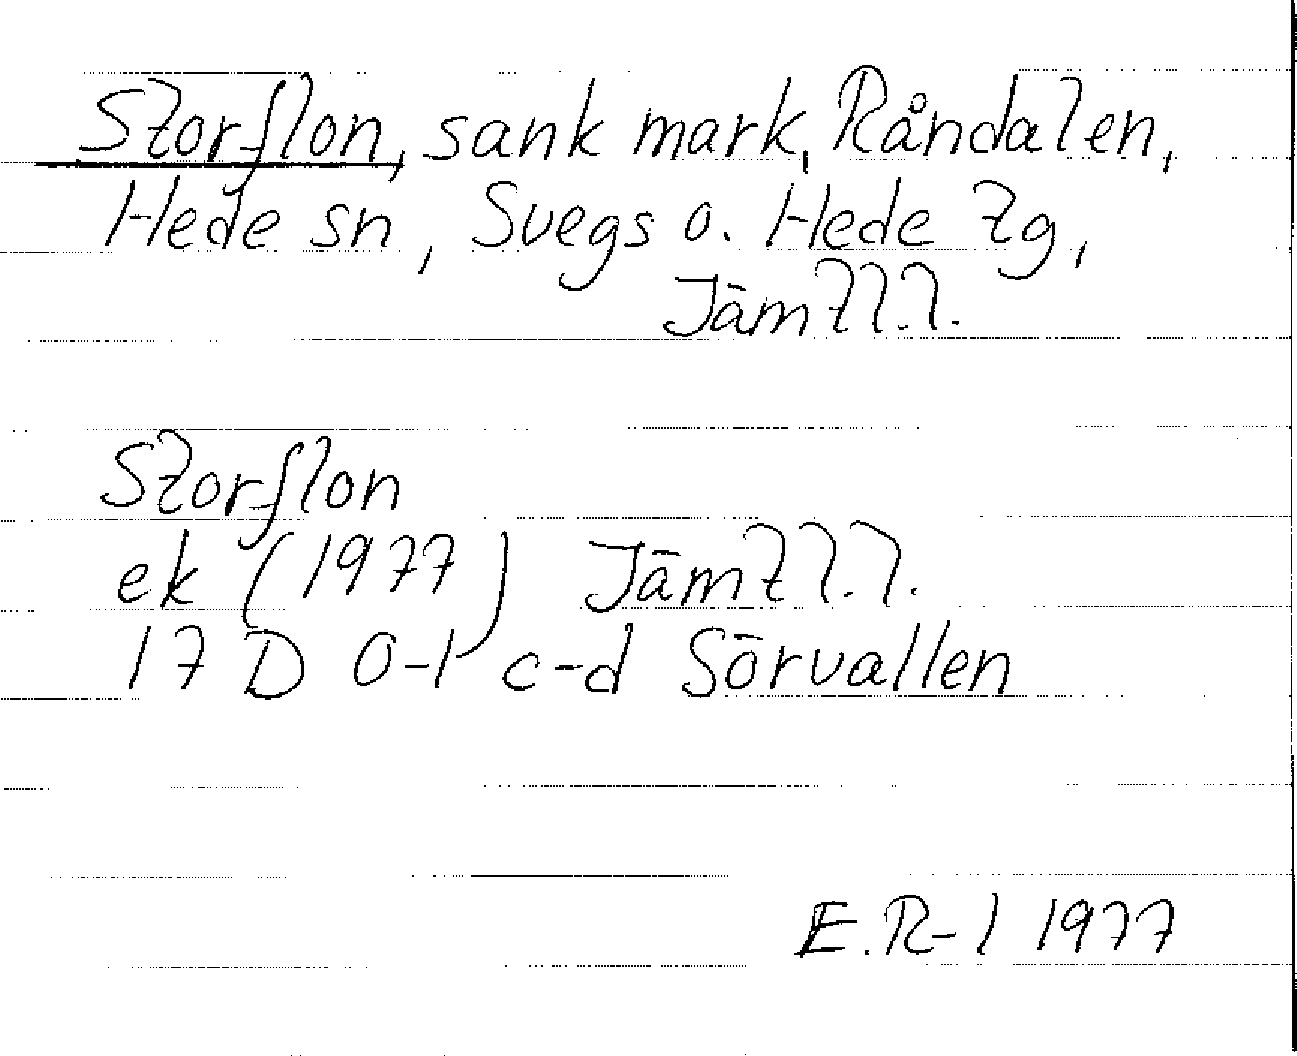 Storflon, sank mark, Råndalen,
Hede sn, Svegs o. Hede tg,
Jämtl.l.
Storflon
ek (1977) Jämtl.l.
17 D 0-1 c-d Sörvallen
E.R-l 1977